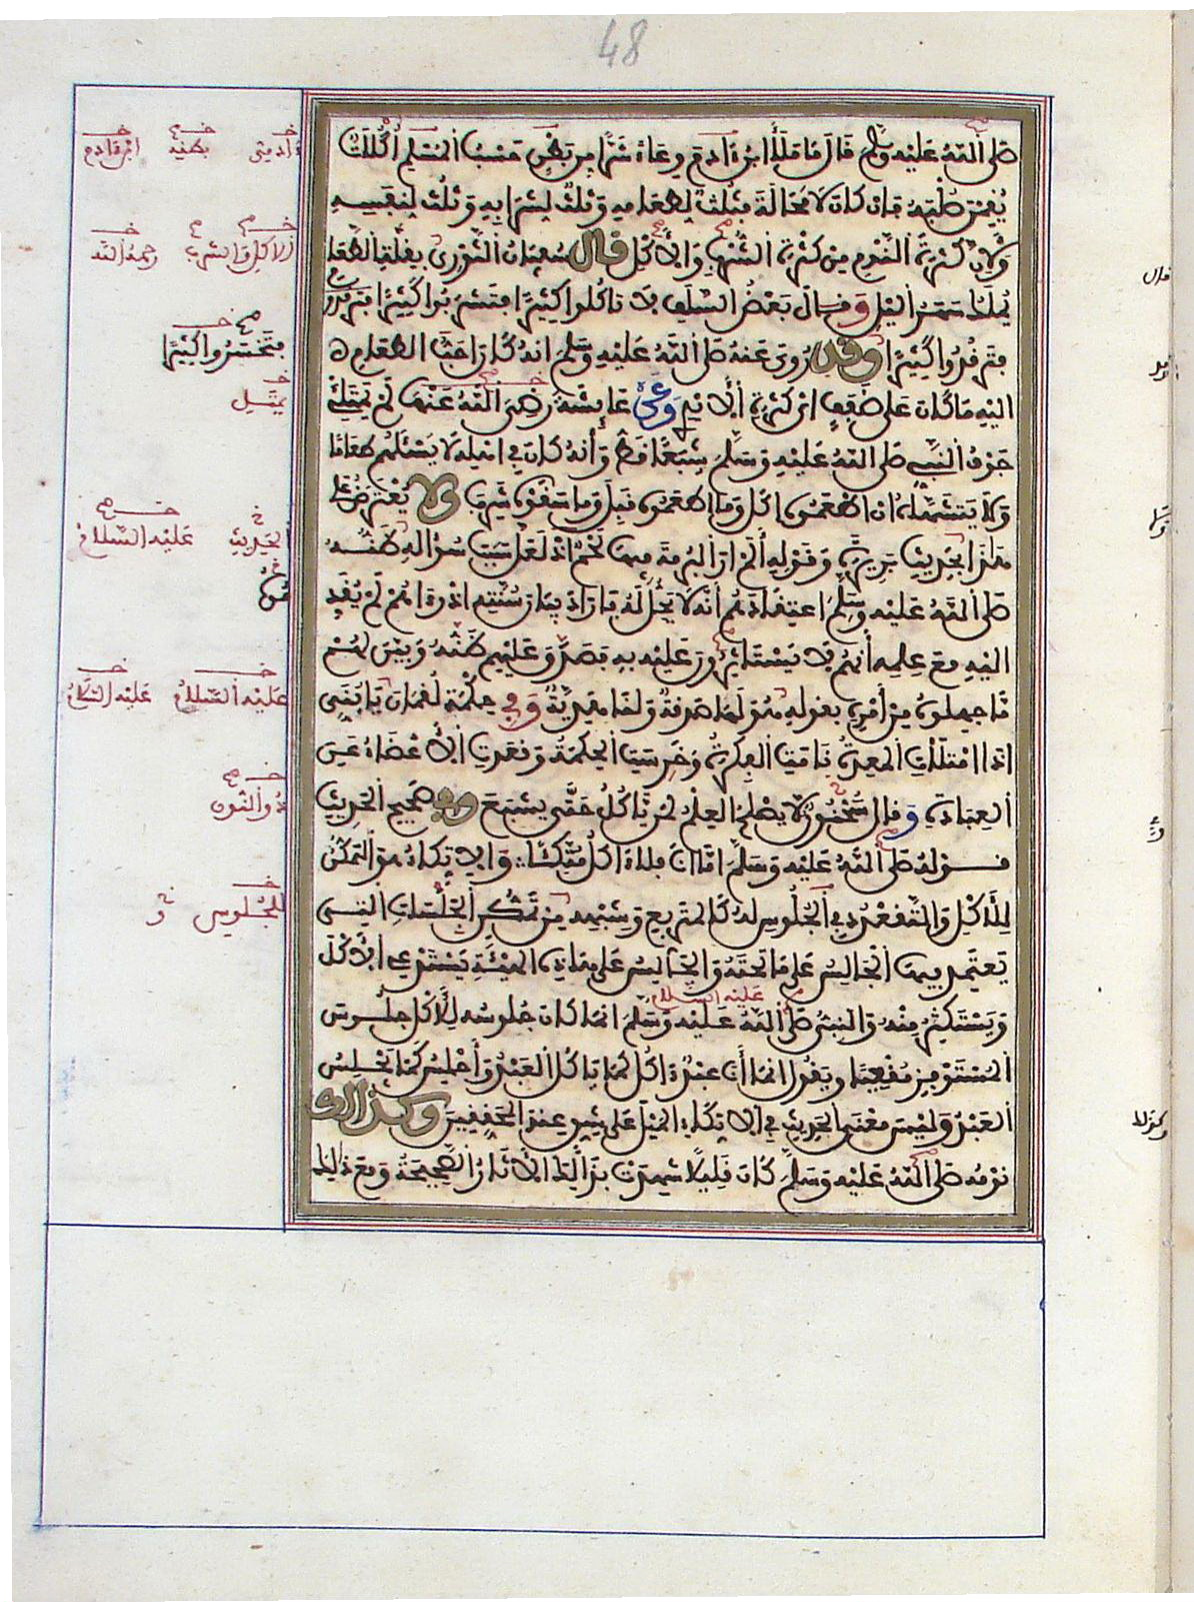 48
صَلَّى اللَّهُ عَلَيْهِ وَسَلَّمَ قَالَ مَا مَلَأَ ابْنُ ءَادَمَ وِعَاءً شَرًّا مِنْ بَطْنٍ حَسْبُ الْمُسْلِمِ أُكُلَاتٌ
يُقِمْنَ صُلْبَهُ فَإِنْ كَانَ لَا مَحَالَةَ فَثُلُثٌ لِطَعَامِهِ وَثُلُثٌ لِشَرَابِهِ وَثُلُثٌ لِنَفَسِهِ
وَلِأَنَّ كَثْرَةَ النَّوْمِ مِنْ كَثْرَةِ الشُّرْبِ وَالْأَكْلِ قَالَ سُفْيَانُ الثَّوْرِيُّ بِقِلَّةِ الطَّعَامِ
يُمْلَكُ سَهَرُ اللَّيْلِ وَقَالَ بَعْضُ السَّلَفِ لَا تَأْكُلُوا كَثِيرًا فَتَشْرَبُوا كَثِيرًا فَتَرْقُدُوا
كَثِيرًا وَقَدْ رُوِيَ عَنْهُ صَلَّى اللَّهُ عَلَيْهِ وَسَلَّمَ أَنَّهُ كَانَ أَحَبُّ الطَّعَامِ
إِلَيْهِ مَا كَانَ عَلَى ضَفَفٍ أَيْ كَثْرَةِ الْأَيْدِي وَعَنْ عَائِشَةَ رَضِيَ اللَّهُ عَنْهَا لَمْ يَمْتَلِئْ
جَوْفُ النَّبِيِّ صَلَّى اللَّهُ عَلَيْهِ وَسَلَّمَ شِبَعًا قَطُّ وَأَنَّهُ كَانَ فِي أَهْلِهِ لَا يَسْئَلُهُمْ طَعَامًا
وَلَا يَتَشَهَّاهُ إِنْ أَطْعَمُوهُ أَكَلَ وَمَا أَطْعَمُوهُ قَبِلَ وَمَا سَقَوْهُ شَرِبَ وَلَا يُعْتَرَضُ عَلَى
هَذَا بِحَدِيثِ بَرِيرَةَ وَقَوْلِهِ أَلَمْ أَرَ الْبُرْمَةَ فِيهَا لَحْمٌ إِذْ لَعَلَّ سَبَبَ سُؤَالِهِ ظَنُّهُ
صَلَّى اللَّهُ عَلَيْهِ وَسَلَّمَ اعْتِقَادَهُمْ أَنَّهُ لَا يَحِلُّ لَهُ فَأَرَادَ بَيَانَ سُنَّتِهِ إِذْ رَءَاهُمْ لَمْ يُقَدِّمُوهُ
إِلَيْهِ مَعَ عِلْمِهِ أَنَّهُمْ لَا يَسْتَاثِرُونَ عَلَيْهِ بِهِ فَصَدَقَ عَلَيْهِمْ ظَنُّهُ وَبَيَّنَ لَهُمْ
مَا جَهِلُوهُ مِنْ أَمْرِهِ بِقَوْلِهِ هُوَ لَهَا صَدَقَةٌ وَلَنَا هَدِيَّةٌ وَفِي حِكْمَةِ لُقْمَانَ يَا بُنَيَّ
إِذَا امْتَلَأَتِ الْمَعِدَةُ نَامَتِ الْفِكْرَةُ وَخَرِسَتِ الْحِكْمَةُ وَقَعَدَتِ الْأَعْضَاءُ عَنِ
الْعِبَادَةِ وَقَالَ سُحْنُونٌ لَا يَصْلُحُ الْعِلْمُ لِمَنْ يَأْكُلُ حَتَّى يَشْبَعَ وَفِي صَحِيحِ الْحَدِيثِ
قَوْلُهُ صَلَّى اللَّهُ عَلَيْهِ وَسَلَّمَ أَمَّا أَنَا فَلَا ءَاكُلُ مُتَّكِئًا وَالِاتِّكَاءُ هُوَ التَّمَكُّنُ
لِلْأَكْلِ وَالتَّقَعْدُدُ فِي الْجُلُوسِ لَهُ كَالْمُتَرَبِّعِ وَشِبْهِهِ مِنْ تَمَكُّنِ الْجَلْسَاتِ الَّتِي
يَعْتَمِدُ فِيهَا الْجَالِسُ عَلَى مَا تَحْتَهُ وَالْجَالِسُ عَلَى هَذِهِ الْهَيْئَةِ يَسْتَدْعِي الْأَكْلَ
وَيَسْتَكْثِرُ مِنْهُ وَالنَّبِيُّ صَلَّى اللَّهُ عَلَيْهِ وَسَلَّمَ إِنَّمَا كَانَ جُلُوسُهُ لِلْأَكْلِ جُلُوسَ
الْمُسْتَوْفِزِ مُقْعِيًا وَيَقُولُ إِنَّمَا أَنَا عَبْدٌ ءَاكُلُ كَمَا يَأْكُلُ الْعَبْدُ وَأَجْلِسُ كَمَا يَجْلِسُ
الْعَبْدُ وَلَيْسَ مَعْنَى الْحَدِيثِ فِي الِاتِّكَاءِ الْمَيْلَ عَلَى شِقٍّ عِنْدَ الْمُحَقِّقِينَ وَكَذَلِكَ
نَوْمُهُ صَلَّى اللَّهُ عَلَيْهِ وَسَلَّمَ كَانَ قَلِيلًا شَهِدَتْ بِذَلِكَ الْآثَارُ الصَّحِيحَةُ وَمَعَ ذَلِكَ
ءَادَمِيٌّ بَطْنِهِ ابْنِ ءَادَمَ
الْأَكْلِ وَالشُّرْبِ رَحِمَهُ اللَّهُ
فَتَخْسَرُوا كَثِيرًا
يَمْتَلِ
الْحَدِيثِ عَلَيْهِ السَّلَامُ
عَلَيْهِ السَّلَامُ عَلَيْهِ السَّلَامُ
ذُو النُّونِ
لِلْجُلُوسِ
عَلَيْهِ السَّلَامُ